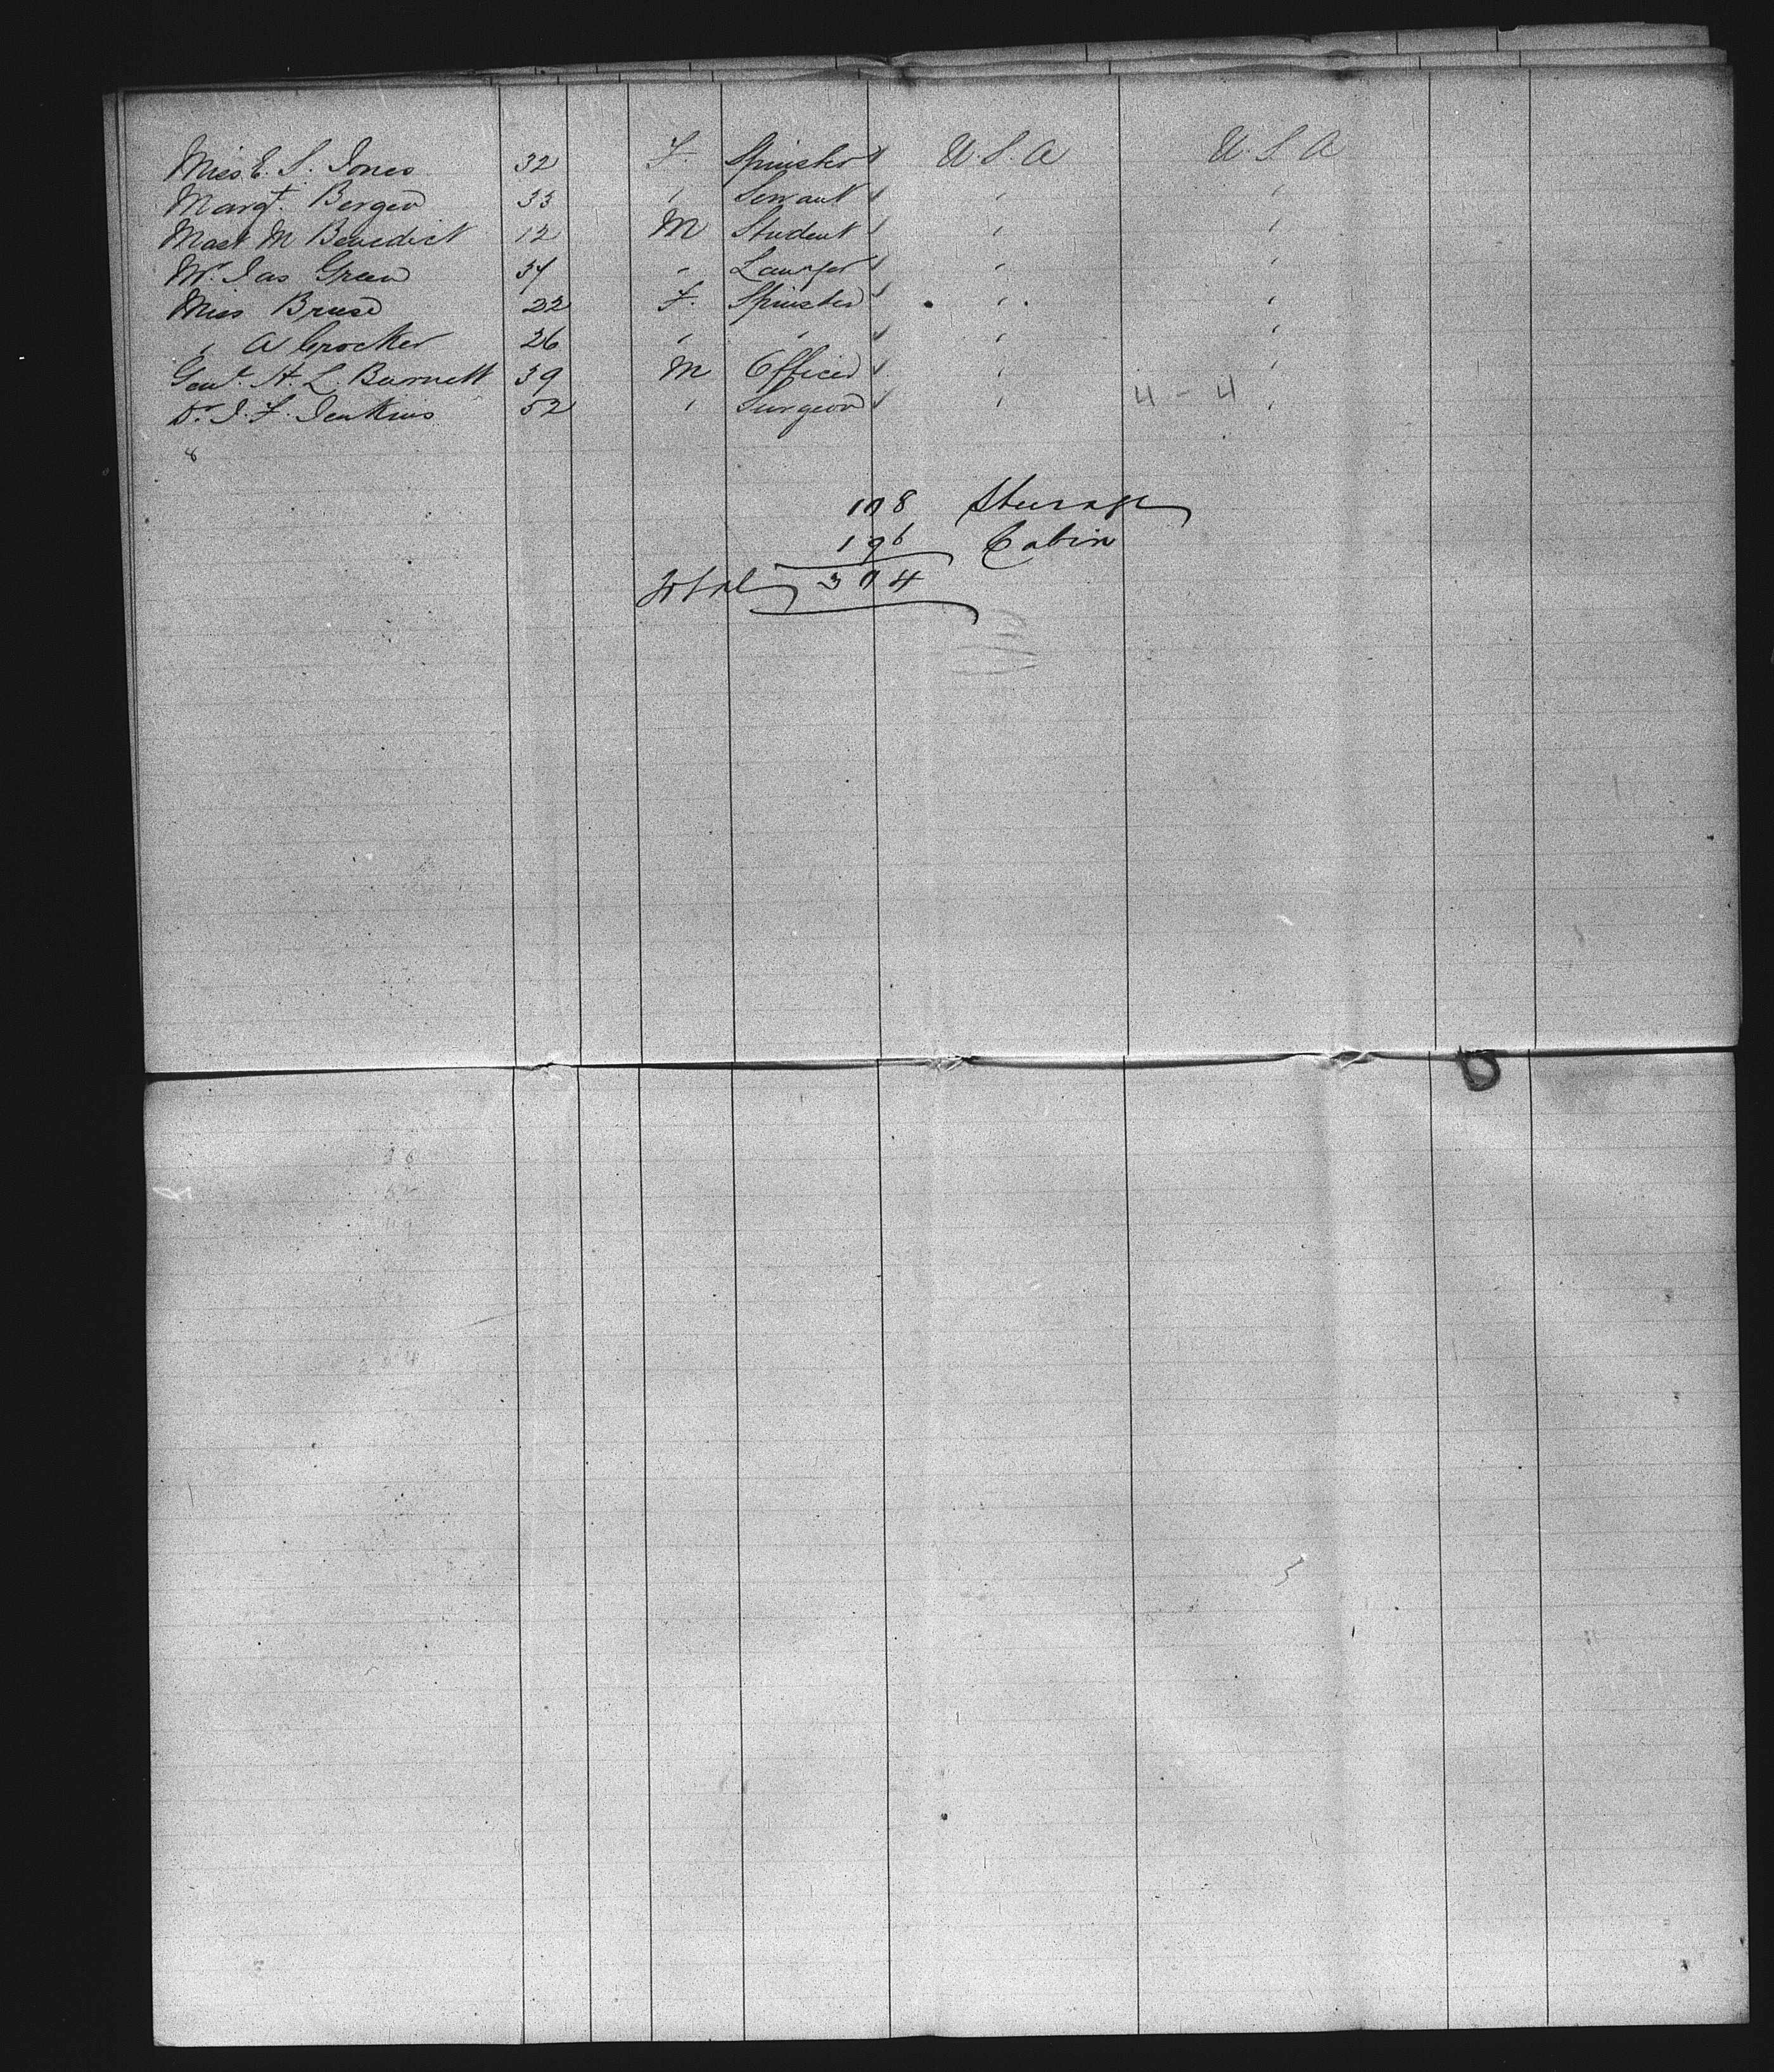 Miss E. S. Jones 32 F. Spinster U.S.A U.S.A
Margt. Bergen 33 " Servant " "
Mast M Benedict 12 M Student " "
Mr. Jas Green 34 " Lawyer " "
Miss Bruse 22 F. Spinster " "
" A Crocker 26 " " " "
Genl. H. L. Burnett 39 M Officer " "
Dr. J. F. Jenkins 52 " Surgeon " 4 - 4 "
8
108 Steerage
196 Cabin
Total 304